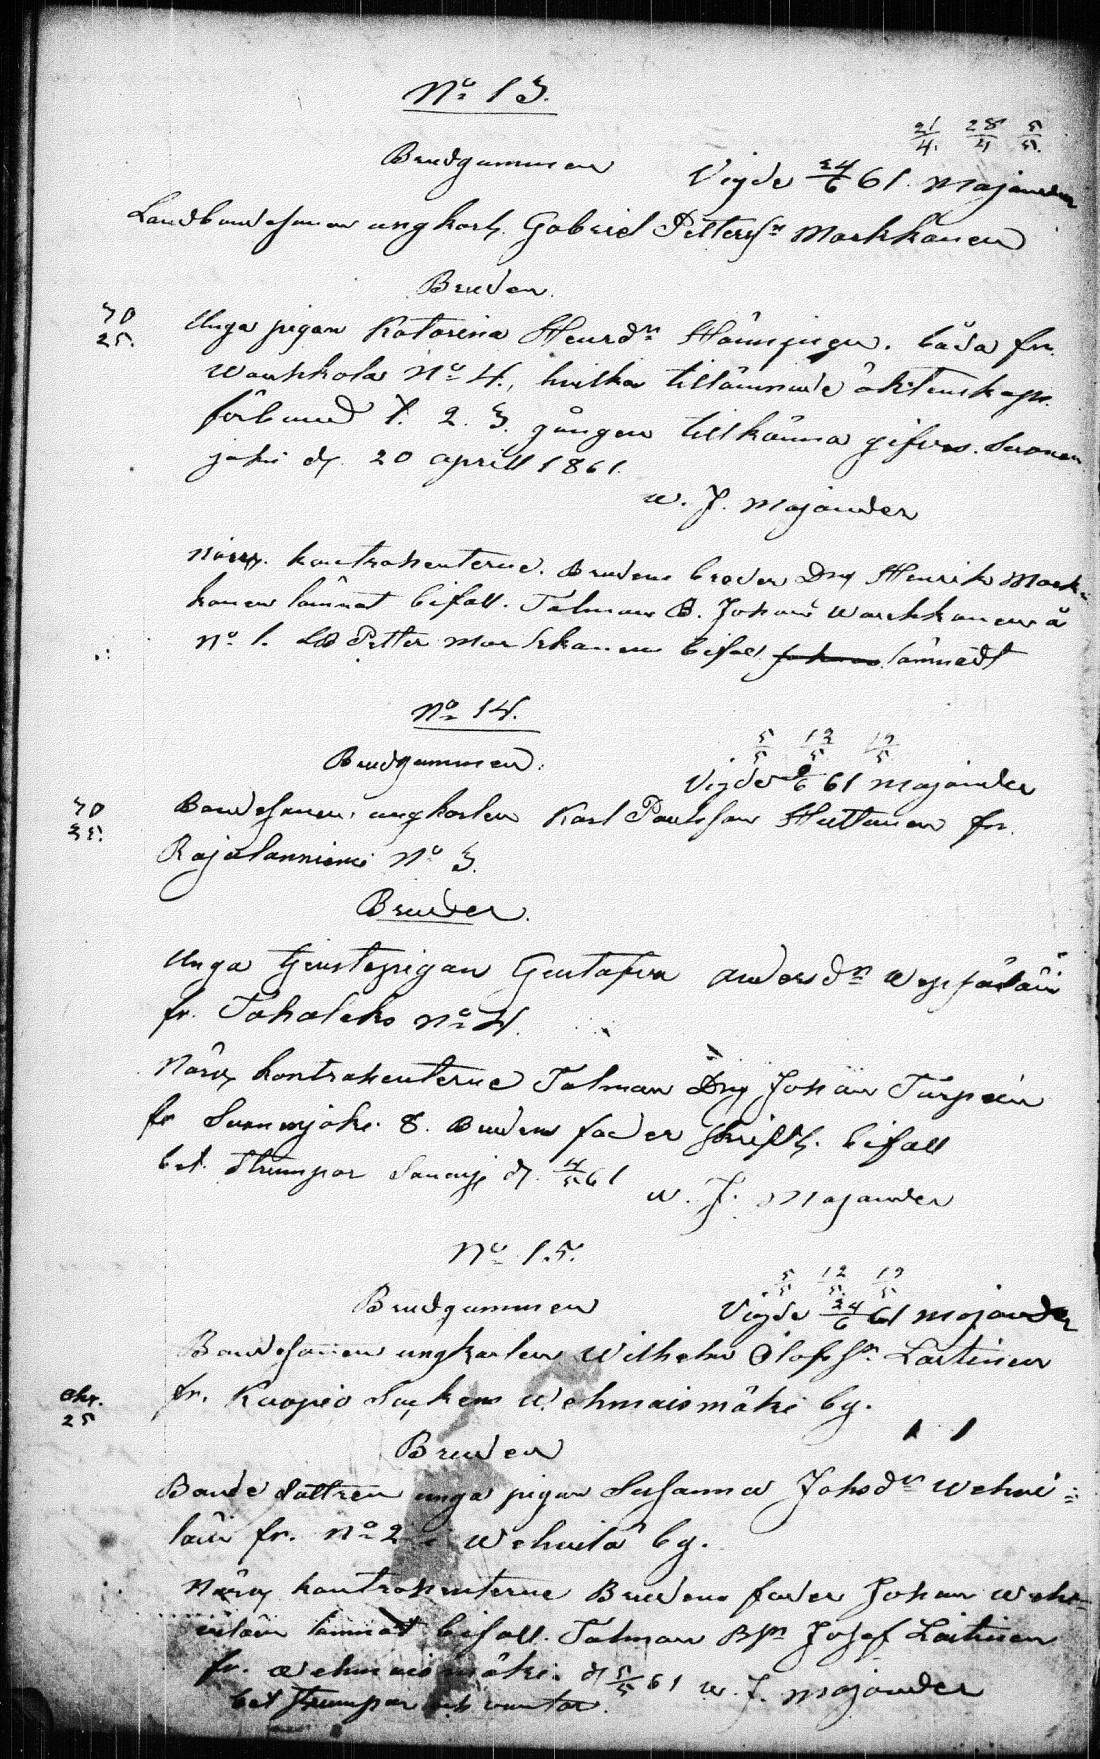 No 13.
21/4. 28/4 5/5.
Brudgummen Vigde 24/6 61. Majander
Landbondesonen ungkarl. Gabriel Petterssn Markkanen
Bruden.
70
25.
Unga pigan Katarina Henrdn Hänninen. båda fr.
No 4., hvilka tillämnade äktenskaps
förbund 1. 2. 3. gången tillkänna gifves. Suonen
joki d. 20 aprill 1861.
W. J. Majander
Närv. kontrahenterne. Brudens broder Drg Henrik Mark-
kanen lämnat bifall. Talman B. Johan Markkanen å
No 1. LB Petter Markkanen bifall lämnadt
No 14.
5/5 12/5 19/5
Brudgummen. Vigde 61 Majander
70
Bondesonen, ungkarlen Karl Paulsson Huttunen fr.
Rajalanniemi No 3.
Bruden.
Unga tjenstepigan Gustafva Andersdn Weps��läin
fr. No 4.
Närv. kontrahenterne Talman Drg Johan Turpein
fr Suonenjoki 8. Brudens fader skriftl. bifall
bet. strumpor d. 4/5 61
W. J. Majander
No 15.
5/5 12/5 19/5
Brudgummen Vigde 24/6 61 Majander
Bondesonen ungkarlen Wilhelm Olofssn Laitinen
fr. Kuopio Sockens Wehmaismäki by.
25
Bruden
Bonde dottren unga pigan Susanna Johsdn Wehvi-
läin fr. No 2 i Wehvilä by.
Närv kontrahenterne Brudens fader Johan Weh-
viläin lämnat bifall. Talman Bsn Josef Laitinen
fr. Wehmaismäki. d 5/5 61 W. J. Majander
bet strumpor och vantar.